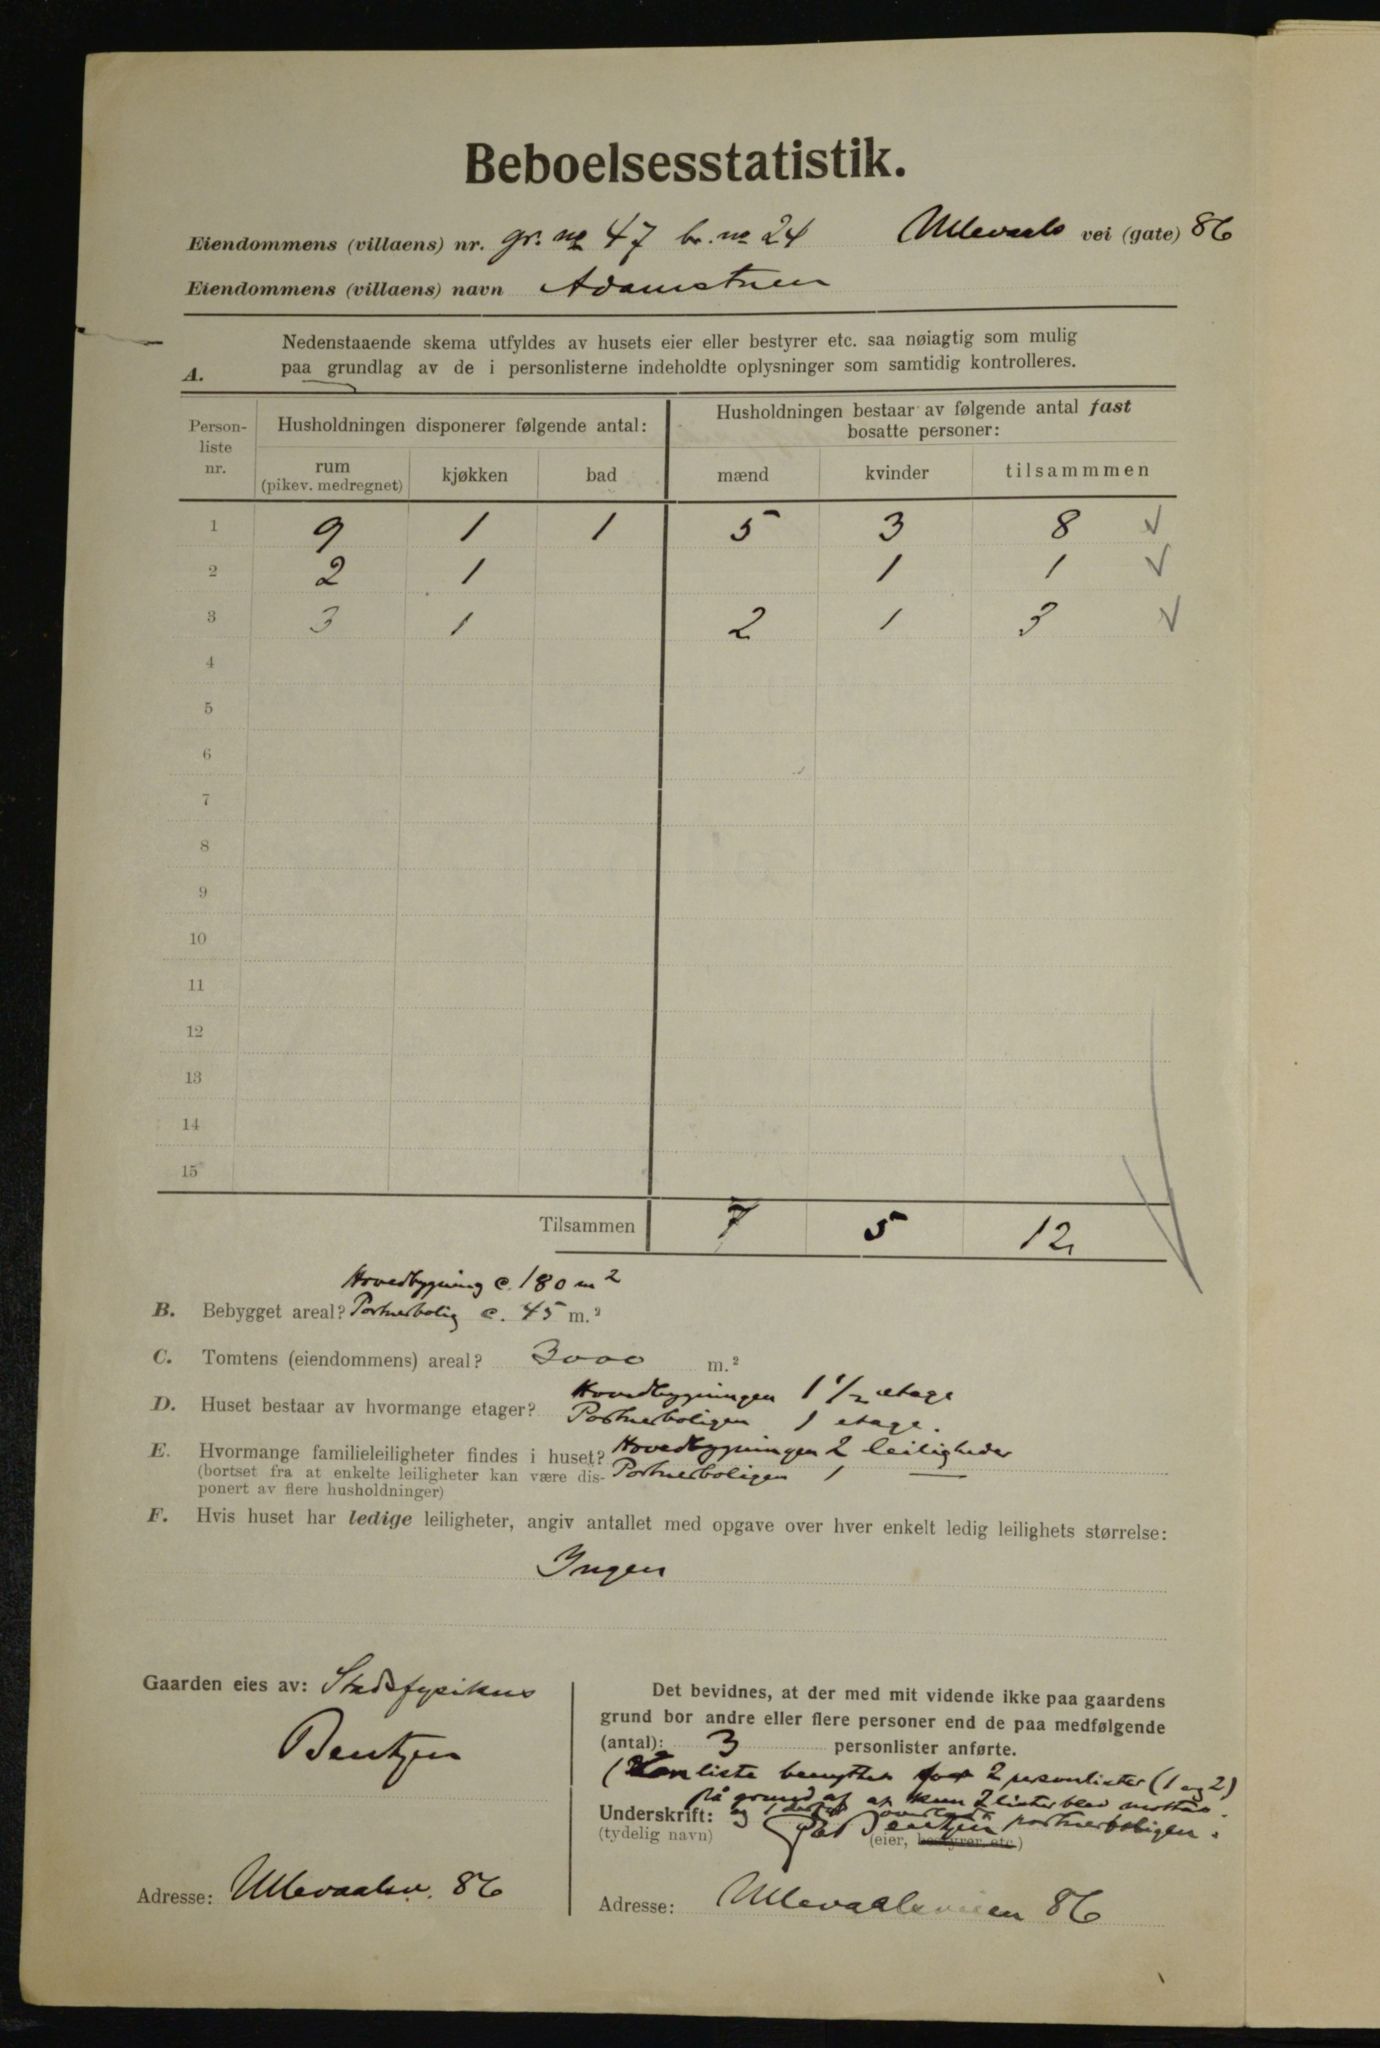 Beboelsesstatistik.
Eiendommens (villaens) nr. gr. no 47 br. no 24 Ullevaals vei (gate) 86
Eiendommens (villaens) navn Adamstuen
A.
Nedenstaaende skema utfyldes av husets eier eller bestyrer etc. saa nøiagtig som mulig
paa grundlag av de i personlisterne indeholdte oplysninger som samtidig kontrolleres.
Person-
liste
nr.
Husholdningen disponerer følgende antal:
Husholdningen bestaar av følgende antal fast
bosatte personer:
rum
(pikev. medregnet)
kjøkken bad mænd kvinder tilsammmen
1 9 1 1 5 3 8 ✓
2 2 1 1 1 ✓
3 3 1 2 1 3 ✓
4
5
6
7
8
9
10
11
12
13
14
15
Tilsammen 7 5 12
Hovedbygning c. 180 m2
B. Bebygget areal? Portnerbolig c. 45 m.²
C. Tomtens (eiendommens) areal? 3000 m.²
Hovedbygningen 1 1/2 etage
D. Huset bestaar av hvormange etager? Portnerboligen 1 etage.
E. Hvormange familieleiligheter findes i huset? Hovedbygningen 2 leiligheder
(bortset fra at enkelte leiligheter kan være dis- Portnerboligen 1
ponert av flere husholdninger)
F. Hvis huset har ledige leiligheter, angiv antallet med opgave over hver enkelt ledig leilighets størrelse:
Ingen
Gaarden eies av: Stadsfysikus
Bentzen
Adresse: Ullevaalsv. 86
Det bevidnes, at der med mit vidende ikke paa gaardens
grund bor andre eller flere personer end de paa medfølgende
(antal): 3 personlister anførte.
liste benyttes for 2 personlister (1 og 2)
på grund af at kun 2 lister blev
Underskrift: og 1 Bentzen portnerboligen.
(tydelig navn) (eier, bestyrer etc.)
Adresse: Ullevaalsveien 86